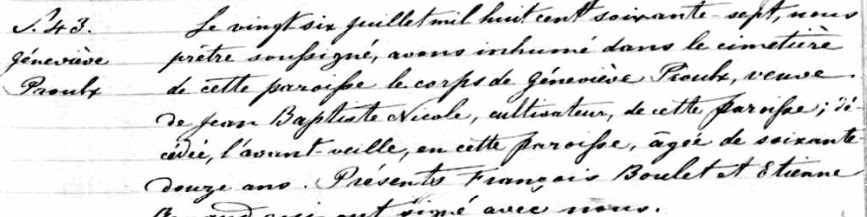 S. 43.
Géneviève
Proulx
Le vingt six juillet mil huit cent soixante-sept, nous
prêtre soussigné, avons inhumé dans le cimetière
de cette paroisse le corps de Géneviève Proulx, veuve
de Jean Baptiste Nicole, cultivateur, de cette paroisse; dé
cédée, l'avant-veille, en cette paroisse, âgée de soixante
douze ans. Présents François Boulet et Etienne
qui ont signé avec nous.